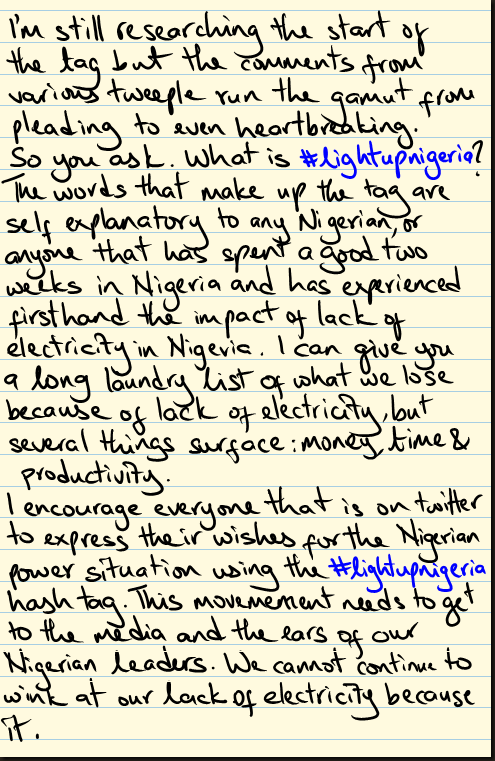 I'm still researching the start of
the tag but the comments from
various tweeple run the gamut from
pleading to even heartbreaking.
So you ask. What is #lightupnigeria?
The words that make up the tag are
self explanatory to any Nigerian, or
anyone that has spent a good two
weeks in Nigeria and has experienced
firsthand the impact of lack of
electricity in Nigeria. I can give you
a long laundry list of what we lose
because of lack of electricity, but
several things surface: money, time &
productivity.
I encourage everyone that is on twitter
to express their wishes for the Nigerian
power situation using the #lightupnigeria
hash tag. This movement needs to get
to the media and the ears of our
Nigerian leaders. We cannot continue to
wink at our lack of electricity because
it.